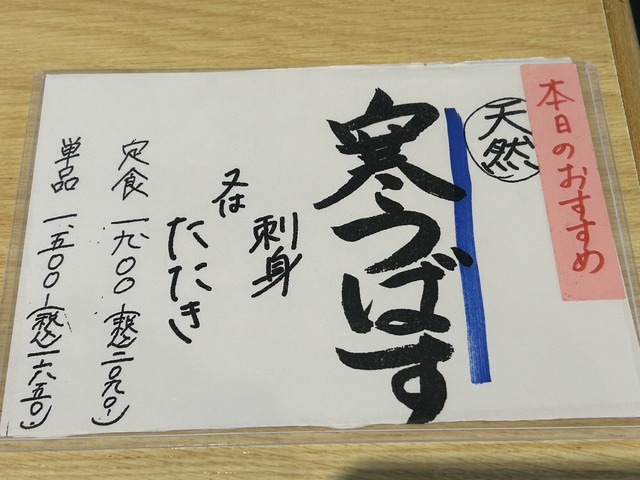 本日のおすすめ
天然
寒うばす
刺身
又は
たたき
定食 一、九〇〇-(税込二、〇九〇-)
単品 一、五〇〇-(税込一、六五〇-)